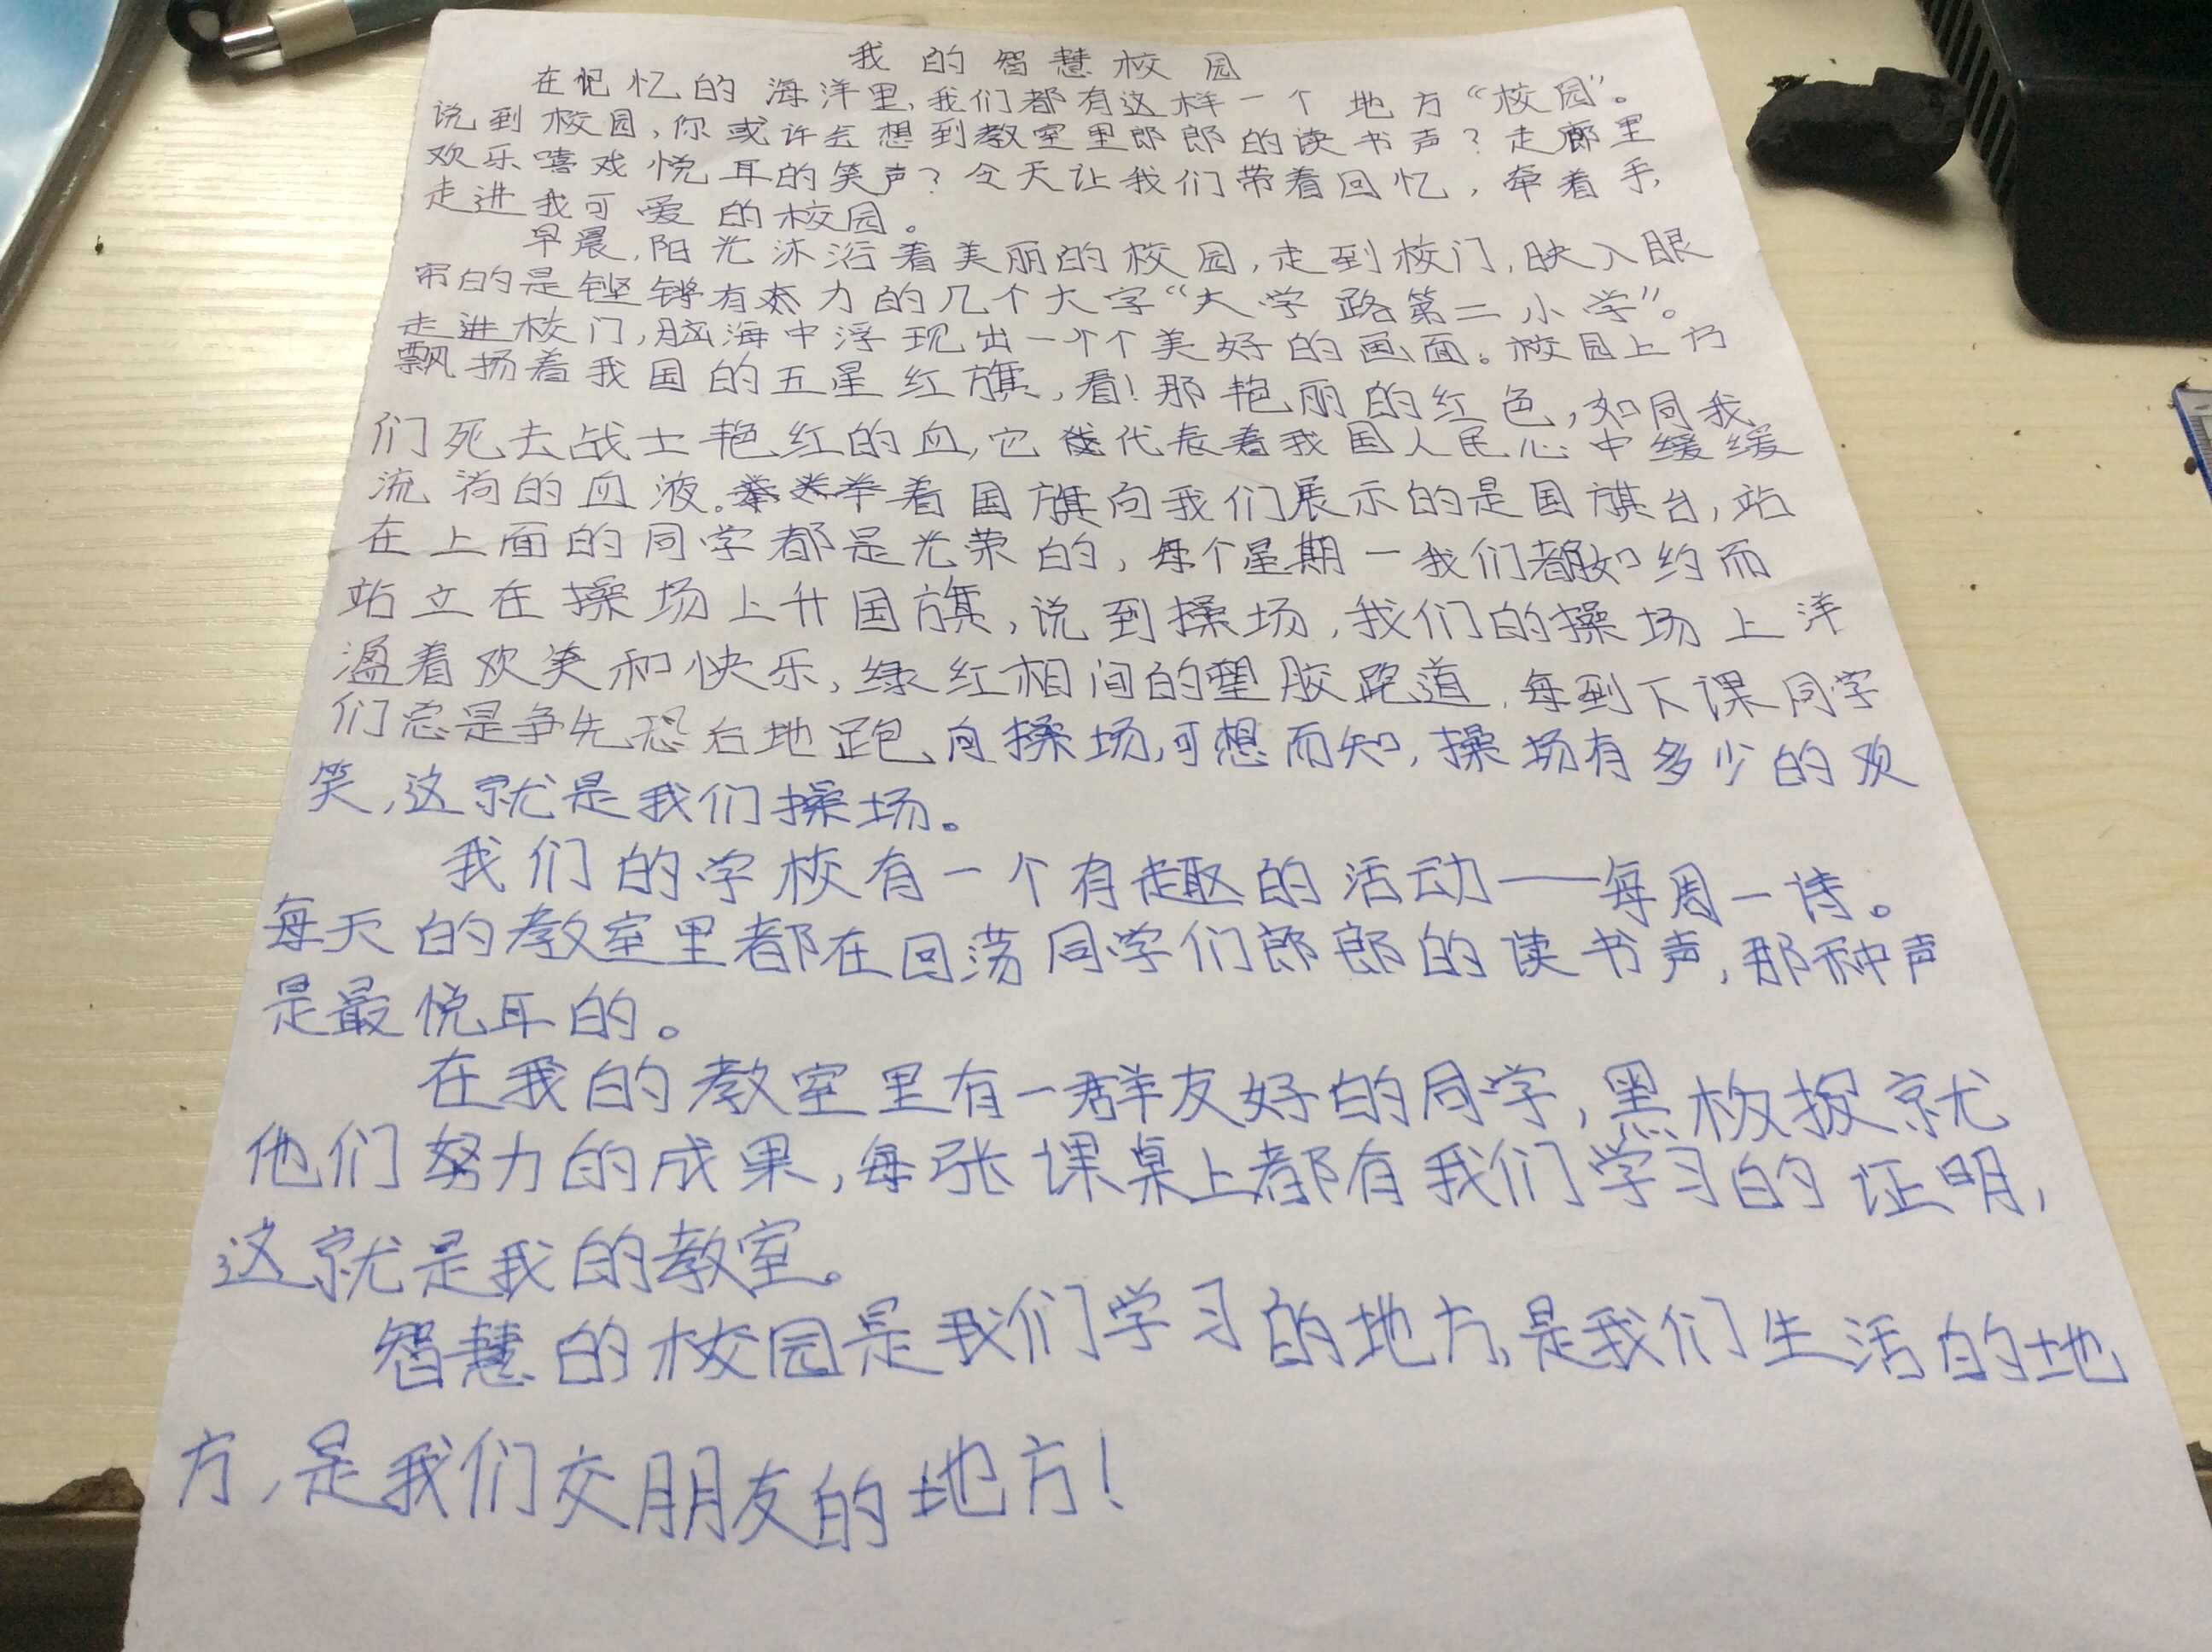 我的智慧校园
在记忆的海洋里,我们都有这样一个地方“校园”。
说到校园,你或许会想到教室里郎郎的读书声?走廊里
欢乐嘻戏悦耳的笑声?今天让我们带着回忆,牵着手,
走进我可爱的校园。
早晨,阳光沐浴着美丽的校园,走到校门,映入眼
帘的是铿锵有力的几个大字“大学路第二小学”。
走进校门,脑海中浮现出一个个美好的画面。校园上方
飘扬着我国的五星红旗,看!那艳丽的红色,如同我
们死去战士艳红的血,它代表着我国人民心中缓缓
流淌的血液。举着国旗向我们展示的是国旗台,站
在上面的同学都是光荣的,每个星期一我们都如约而
站立在操场上升国旗,说到操场,我们的操场上洋
溢着欢笑和快乐,绿红相间的塑胶跑道,每到下课同学
们总是争先恐后地跑向操场,可想而知,操场有多少的欢
笑,这就是我们操场。
我们的学校有一个有趣的活动——每周一诗。
每天的教室里都在回荡同学们郎郎的读书声,那种声
是最悦耳的。
在我的教室里有一群友好的同学,黑板报就
他们努力的成果,每张课桌上都有我们学习的证明,
这就是我的教室。
智慧的校园是我们学习的地方,是我们生活的地
方,是我们交朋友的地方!